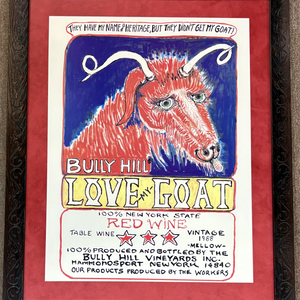 THEY HAVE MY NAME & HERITAGE, BUT THEY DIDN'T GET MY GOAT!
BULLY HILL
LOVE MY GOAT
100% NEW YORK STATE
RED WINE
TABLE WINE
VINTAGE
1988
-MELLOW-
100% PRODUCED AND BOTTLED BY THE
BULLY HILL VINEYARDS INC.
HAMMONDSPORT NEW YORK 14840
OUR PRODUCTS PRODUCED BY THE WORKERS